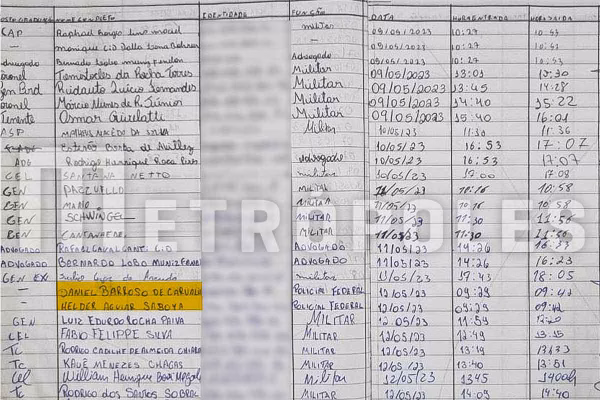 POSTO/GRADUAÇÃO NOME COMPLETO IDENTIDADE FUNÇÃO DATA HORA ENTRADA HORA SAÍDA
CAP Raphael Borges Lino maciel militar 09/05/2023 10:27 10:43
— monique Cid 09/05/2023 10:27 10:43
Advogado Bernardo Lobo muniz Advogado 09/05/2023 10:27 10:43
Coronel Temístocles da Rocha Torres Militar 09/05/2023 13:01
Gen Brd Ridauto Lúcio Fernandes Militar 09/05/2023 13:45 14:28
Coronel Márcio Nunes de R. Júnior Militar 09/05/2023 14:40 15:22
Tenente Osmar Militar 09/05/2023 16:01
ASP MATHEUS DA SILVA Militar 10/05/2023 11:30 11:36
Estevão 10/05/2023 16:53 17:07
ADV Rodrigo Henrique Roca Pires advogado 10/05/2023 16:53 17:07
CEL SANTANA NETTO militar 10/05/2023 17:00 17:08
GEN PAZUELLO MILITAR 11/05/23 10:16 10:58
GEN MARIO MILITAR 11/05/23 10:16 10:58
GEN SCHWINGEL MILITAR 11/05/23 11:30 11:56
GEN CANTANHEDE MILITAR 11/05/23 11:30
ADVOGADO RAFAEL CAVALCANTI ADVOGADO 11/05/2023 14:26 16:23
ADVOGADO BERNARDO LOBO MUNIZ ADVOGADO 11/05/2023 14:26 16:23
GEN EX militar 11/05/2023 17:43 18:05
— DANIEL BARROSO DE CARVALHO POLICIAL FEDERAL 12/05/2023 09:29 09:42
— HELDER AGUIAR SABOYA POLICIAL FEDERAL 12/05/2023 09:29 09:42
GEN LUIZ EDURDO ROCHA PAIVA MILITAR 12/05/2023 11:59
CEL FÁBIO FELIPPE SILVA MILITAR 12/05/2023 12:49 13:15
TC RODRIGO CADILHE DE ALMEIDA MILITAR 12/05/23 13:19 13:33
TC KAUÊ MENEZES CHAGAS MILITAR 12/05/23 13:40 13:51
Cel William Henrique Militar 12/05/23 1345 1400h
TC RODRIGO DOS SANTOS MILITAR 12/05/23 14:09 14:40
METRÓPOLES